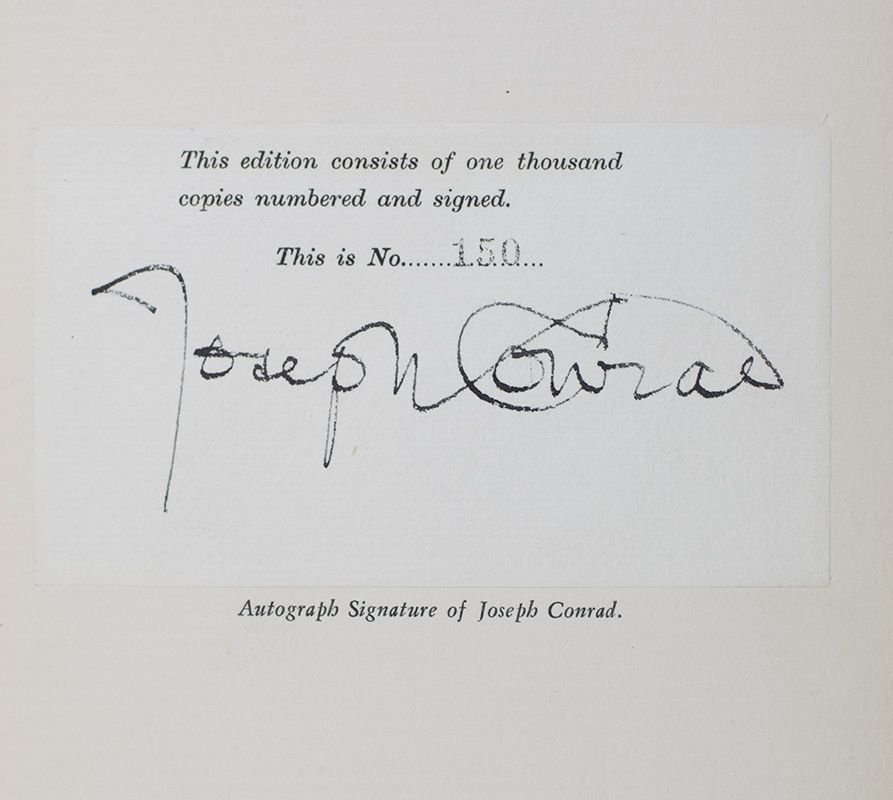 This edition consists of one thousand
copies numbered and signed.
This is No.......150...
Joseph Conrad
Autograph Signature of Joseph Conrad.